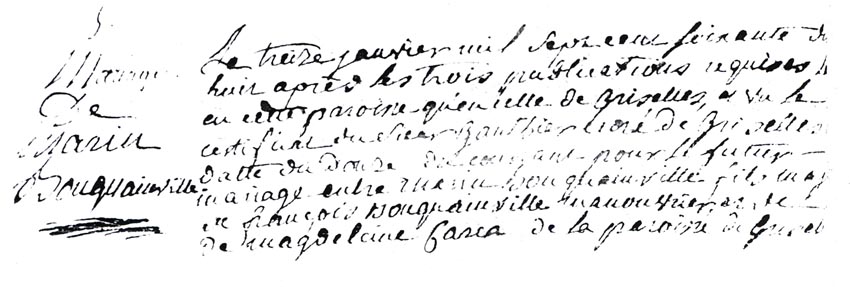 Mariage
De
Marin
Bouquainville
Le treize janvier mil sept cent soixante dix
huit après les trois publications requises
en cette paroisse qu'en celle de Griselles, et vu le
certificat du sieur Gauthier curé de Griselles
datté du douze du courant pour le futur
mariage entre marin bouquainville fils
de françois bouquainville manouvrier et de
de magdeleine de la paroisse de